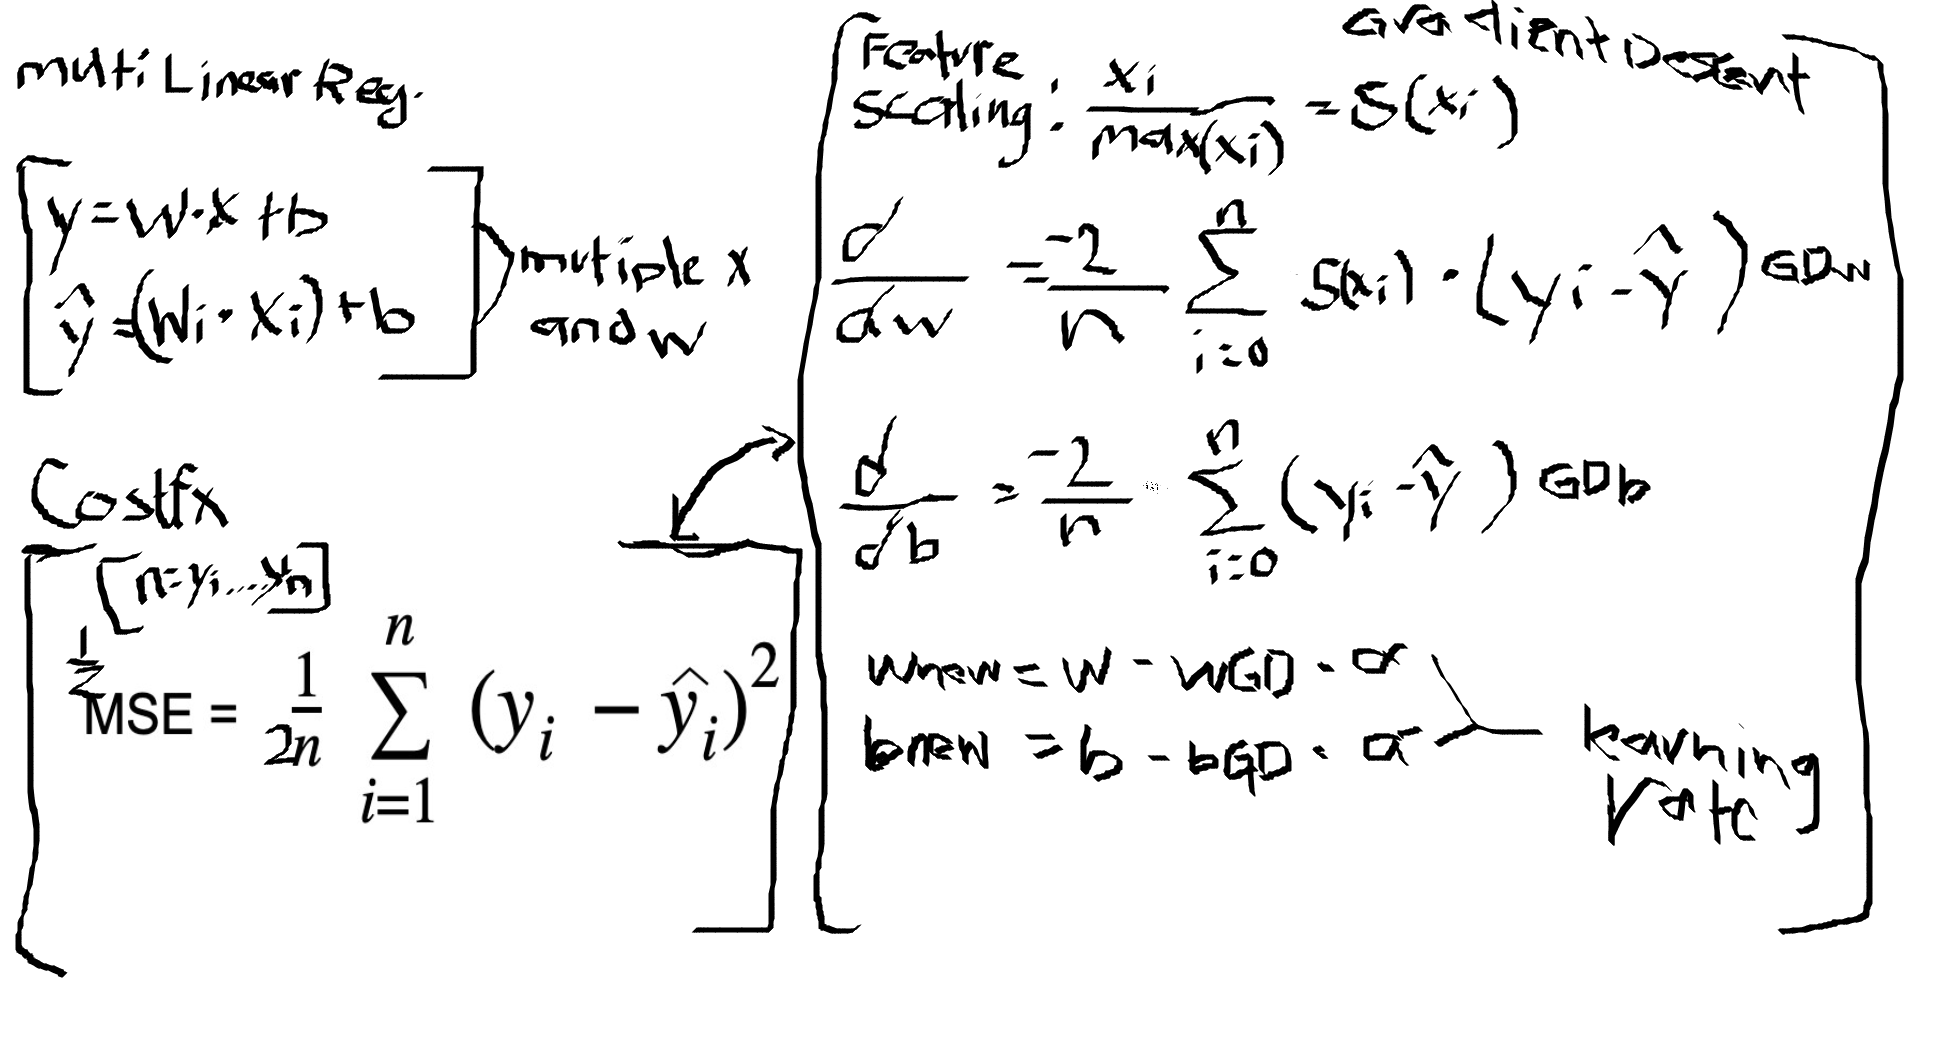 multi Linear Reg.
y = w · x + b
ŷ = (Wi · Xi) + b
mutiple x
and w
Costfx
[n = yi...yn]
1/2 MSE = 1/2n ∑ i=1 n (yi − ŷi)²
Gradient Descent
Feature
Scaling: xi / max(xi) = S(xi)
d/dw = -2/n ∑ i=0 n S(xi) · (yi - ŷ) GDw
d/db = -2/n ∑ i=0 n (yi - ŷ) GDb
wnew = w - wGD · α
bnew = b - bGD · α
learning
rate